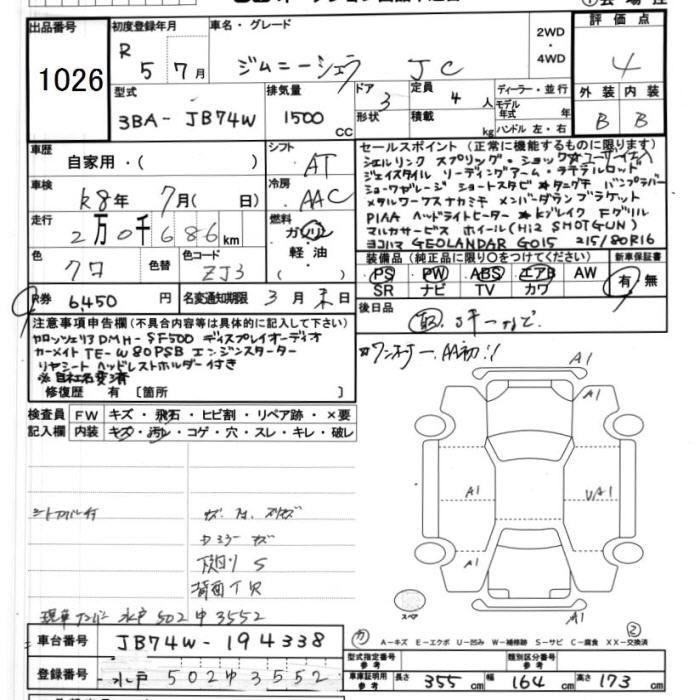 出品番号 1026
初度登録年月 R 5年 7月
車名・グレード ジムニーシエラ JC
2WD・4WD
評価点 4
型式 3BA- JB74W
排気量 1500 CC
ドア 3 形状
定員 4 人 積載 kg
ディーラー・並行
モデル年式 年
ハンドル 左・右
外装 B 内装 B
車歴 自家用・( )
シフト AT
車検 R8年 7月( 日)
冷房 AAC
走行 2万0千686km
燃料 ガソリン 軽油
色 クロ 色替
色コード ZJ3
R券 6,450円
名変通知期限 3月末日
セールスポイント(正常に機能するものに限ります)
シエルリンク スプリング・ショック ☆ユーザー仕入
ジェイスタイル リーディングアーム・ラテラルロッド
ショウワガレージ ショートスタビ ★タニグチ バンプラバー
メタルワークスナカミチ メンバーダウンブラケット
PIAA ヘッドライトヒーター ★Kブレイク Fグリル
マルカサービス ホイール(Hi2 SHOTGUN)
ヨコハマ GEOLANDAR G015 215/80R16
装備品(純正品に限り○をつけてください)
PS PW ABS エアB AW
SR ナビ TV カワ
新車保証書 有・無
後日品 取、Sキーなど
注意事項申告欄(不具合内容等は具体的に記入して下さい)
カロッツェリア DMH-SF500 ディスプレイオーディオ
カーメイト TE-W80PSB エンジンスターター
リヤシート ヘッドレストホルダー付き
※自社名変済
修復歴 有 〔箇所 〕
☆ワンオーナー、AA初!!
検査員記入欄
FW キズ・飛石・ヒビ割・リペア跡・×要
内装 キズ・汚れ・コゲ・穴・スレ・キレ・破レ
シートカバー付
下廻り S
背面TR
現車ナンバー 水戸502ゆ3552
A1
A1
A1
UA1
A1
A1
スペア
A-キズ E-エクボ U-凹み W-補修跡 S-サビ C-腐食 XX-交換済
車台番号 JB74W-194338
登録番号 水戸 502ゆ3552
型式指定番号 参考
類別区分番号 参考
車庫証明用 参考 長さ 355cm 幅 164cm 高さ 173cm